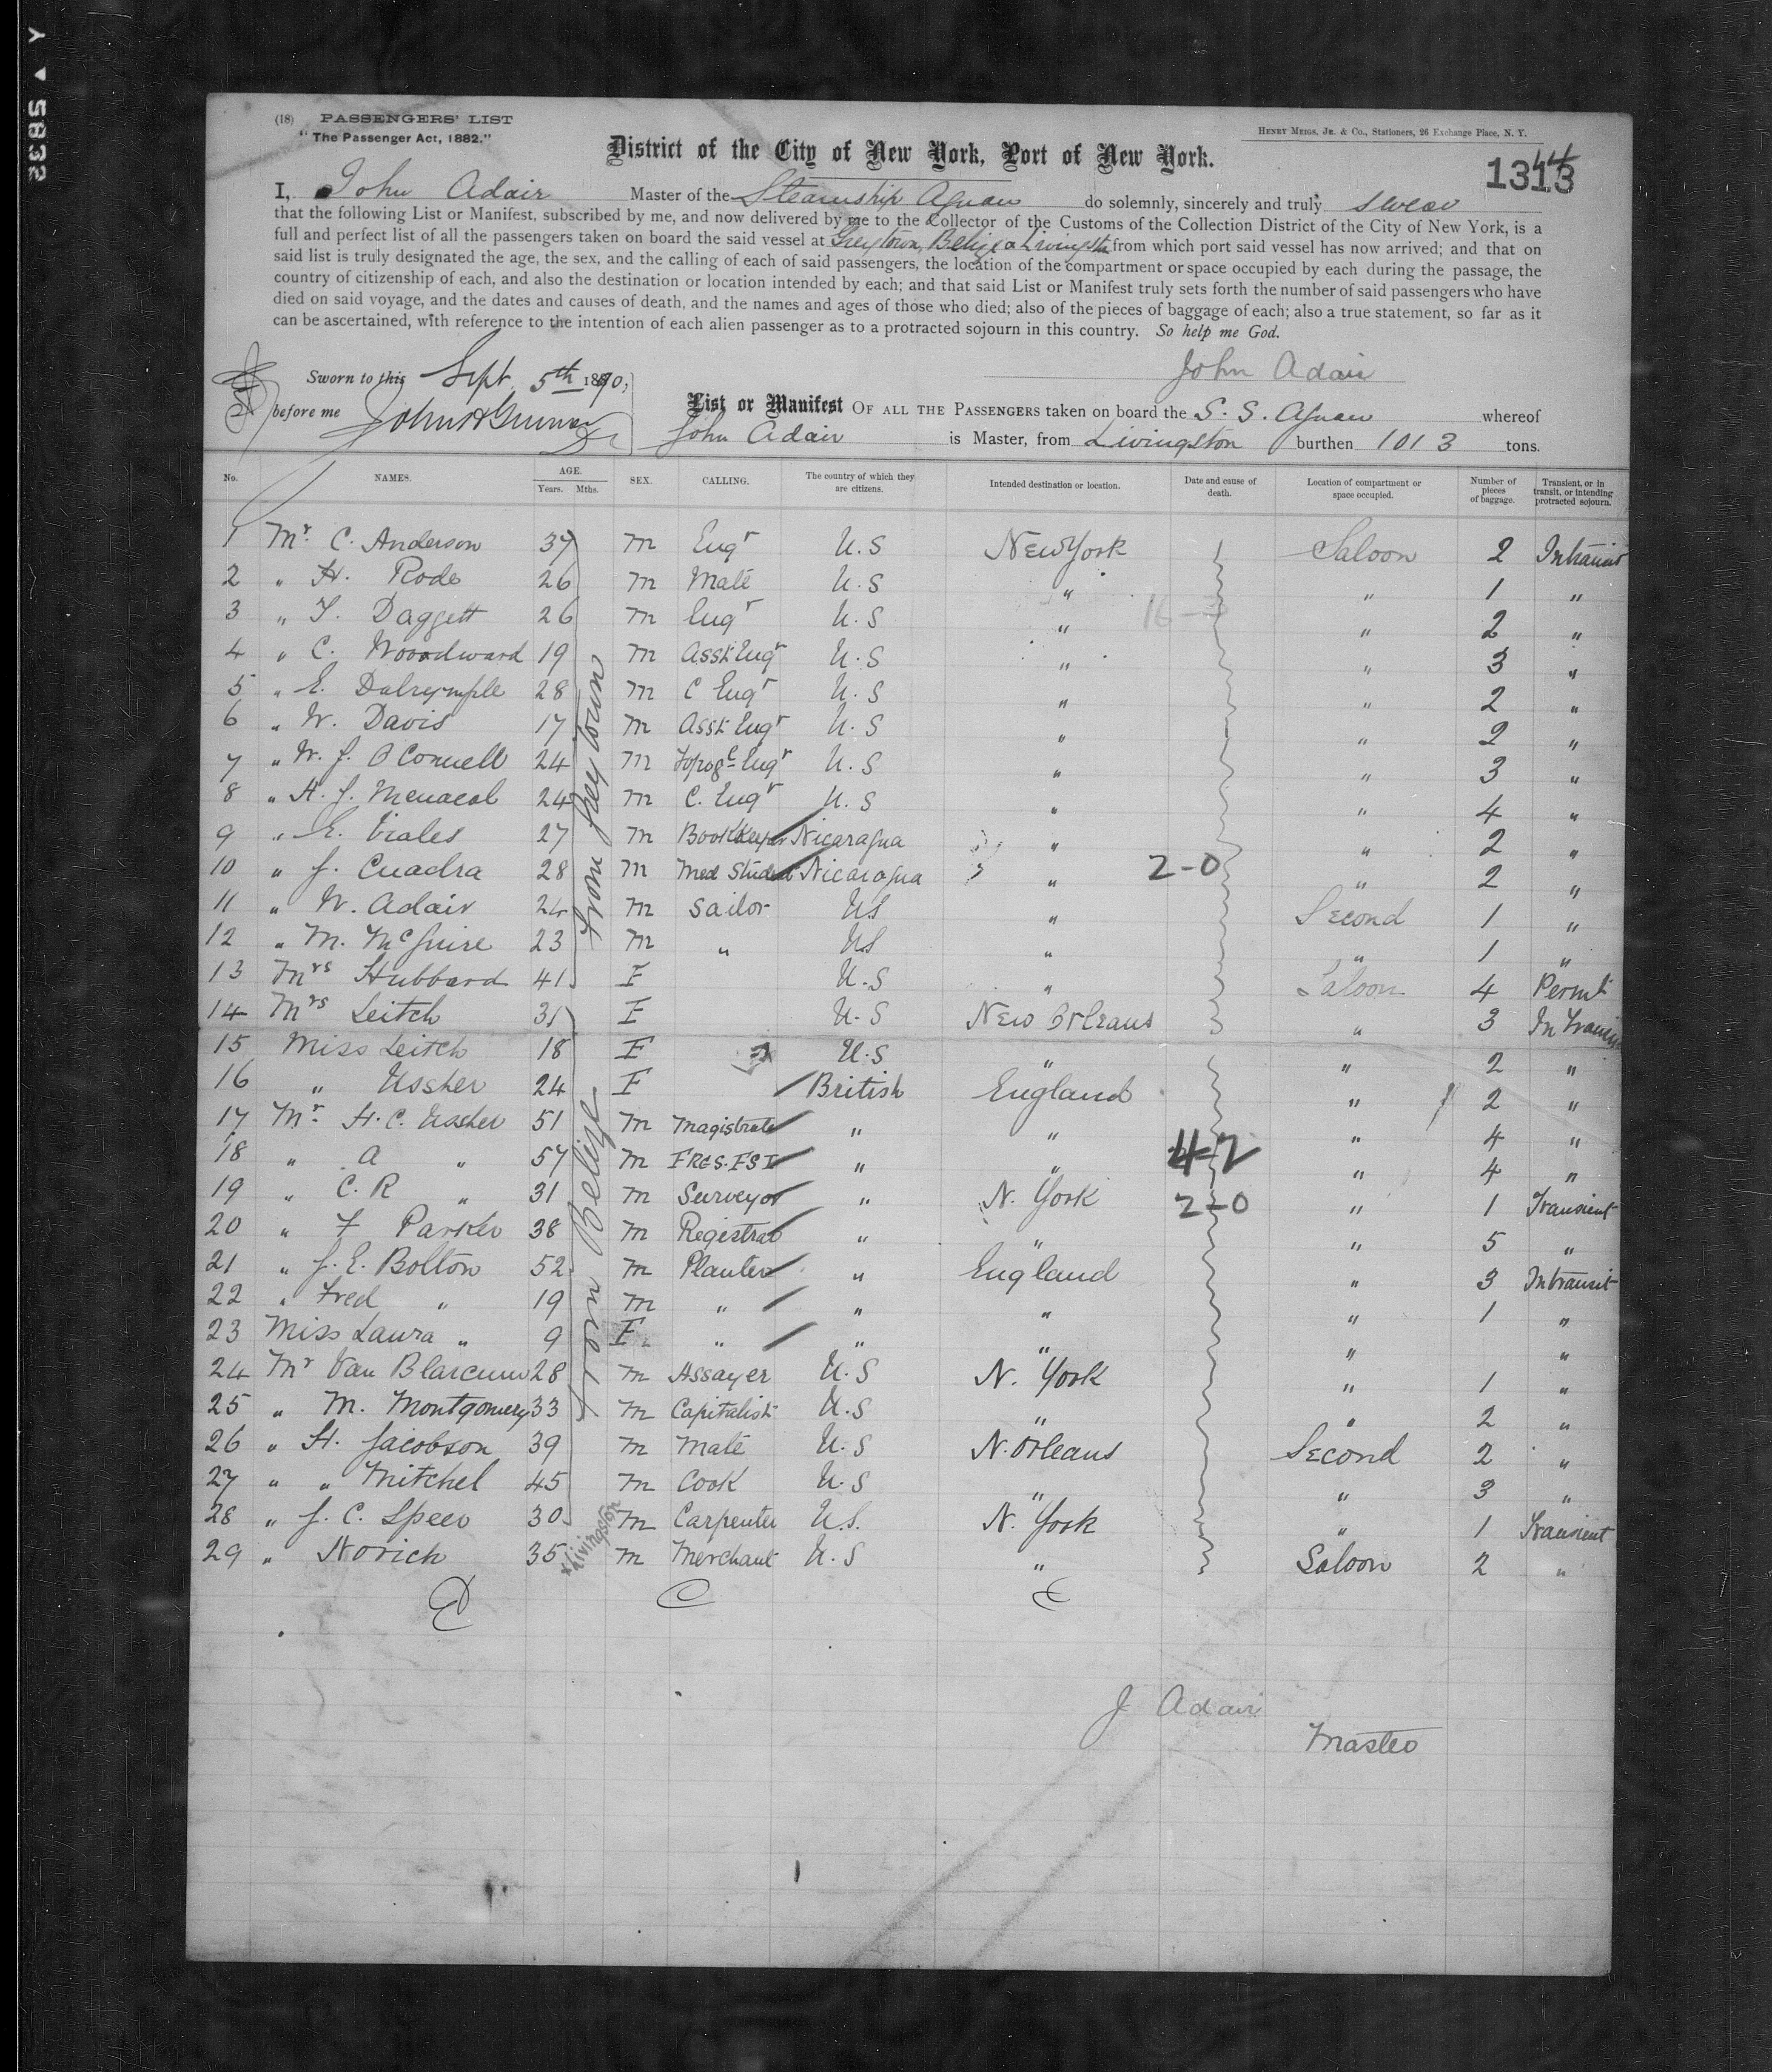 Y ▲ 5832
(18) PASSENGERS' LIST
"The Passenger Act, 1882."
HENRY MEIGS, JR. & CO., Stationers, 26 Exchange Place, N. Y.
District of the City of New York, Port of New York.
1313 44
I, John Adair Master of the Steamship Aguan do solemnly, sincerely and truly swear
that the following List or Manifest, subscribed by me, and now delivered by me to the Collector of the Customs of the Collection District of the City of New York, is a
full and perfect list of all the passengers taken on board the said vessel at Greytown, Belize & Livingston from which port said vessel has now arrived; and that on
said list is truly designated the age, the sex, and the calling of each of said passengers, the location of the compartment or space occupied by each during the passage, the
country of citizenship of each, and also the destination or location intended by each; and that said List or Manifest truly sets forth the number of said passengers who have
died on said voyage, and the dates and causes of death, and the names and ages of those who died; also of the pieces of baggage of each; also a true statement, so far as it
can be ascertained, with reference to the intention of each alien passenger as to a protracted sojourn in this country. So help me God.
John Adair
Sworn to this Sept. 5th 1890,
before me
List or Manifest OF ALL THE PASSENGERS taken on board the S. S. Aguan whereof
John Adair is Master, from Livingston burthen 1013 tons.
No. NAMES. AGE. Years. Mths. SEX. CALLING. The country of which they are citizens. Intended destination or location. Date and cause of death. Location of compartment or space occupied. Number of pieces of baggage. Transient, or in transit, or intending protracted sojourn.
1 Mr. C. Anderson 37 M Engr U.S New York Saloon 2 Intransit
2 " H. Rode 26 M Mate U.S " " 1 "
3 " T. Daggett 26 M Engr U.S " 16- " 2 "
4 " C. Woodward 19 M Asst Engr U.S " " 3 "
5 " E. Dalrymple 28 M C Engr U.S " " 2 "
6 " W. Davis 17 M Asst Engr U.S " " 2 "
7 " W. J. O'Connell 24 M Topogl Engr U.S " " 3 "
8 " A. J. Menacal 24 M C. Engr U.S " " 4 "
9 " E. Viales 27 M Bookkeeper Nicaragua " " 2 "
10 " J. Cuadra 28 M Med Student Nicaragua " 2-0 " 2 "
11 " W. Adair 24 M Sailor US " Second 1 "
12 " M. McGuire 23 M " US " " 1 "
13 Mrs Hubbard 41 F U.S " Saloon 4 Permt
From Greytown
14 Mrs Leitch 31 F U.S New Orleans " 3 In transit
15 Miss Leitch 18 F U.S " " 2 "
16 " Ussher 24 F British England " 2 "
17 Mr. H. C. Ussher 51 M Magistrate " " " 4 "
18 " A " 57 M FRGS. FSI " " 4-2 " 4 "
19 " C. R " 31 M Surveyor " N. York 2-0 " 1 Transient
20 " F Parker 38 M Registrar " " " 5 "
21 " J. E. Bolton 52 M Planter " England " 3 Intransit
22 " Fred " 19 M " " " " 1 "
23 Miss Laura " 9 F. " " " " "
24 Mr Van Blarcum 28 M Assayer U.S N. York " 1 "
25 " M. Montgomery 33 M Capitalist U.S " " 2 "
26 " H. Jacobson 39 M Mate U.S N. Orleans Second 2 "
27 " " Mitchel 45 M Cook U.S " " 3 "
28 " J. C. Speer 30 M Carpenter U.S. N. York " 1 Transient
From Belize
29 " Norich 35 M Merchant U.S " Saloon 2 "
Livingston
J Adair
Master